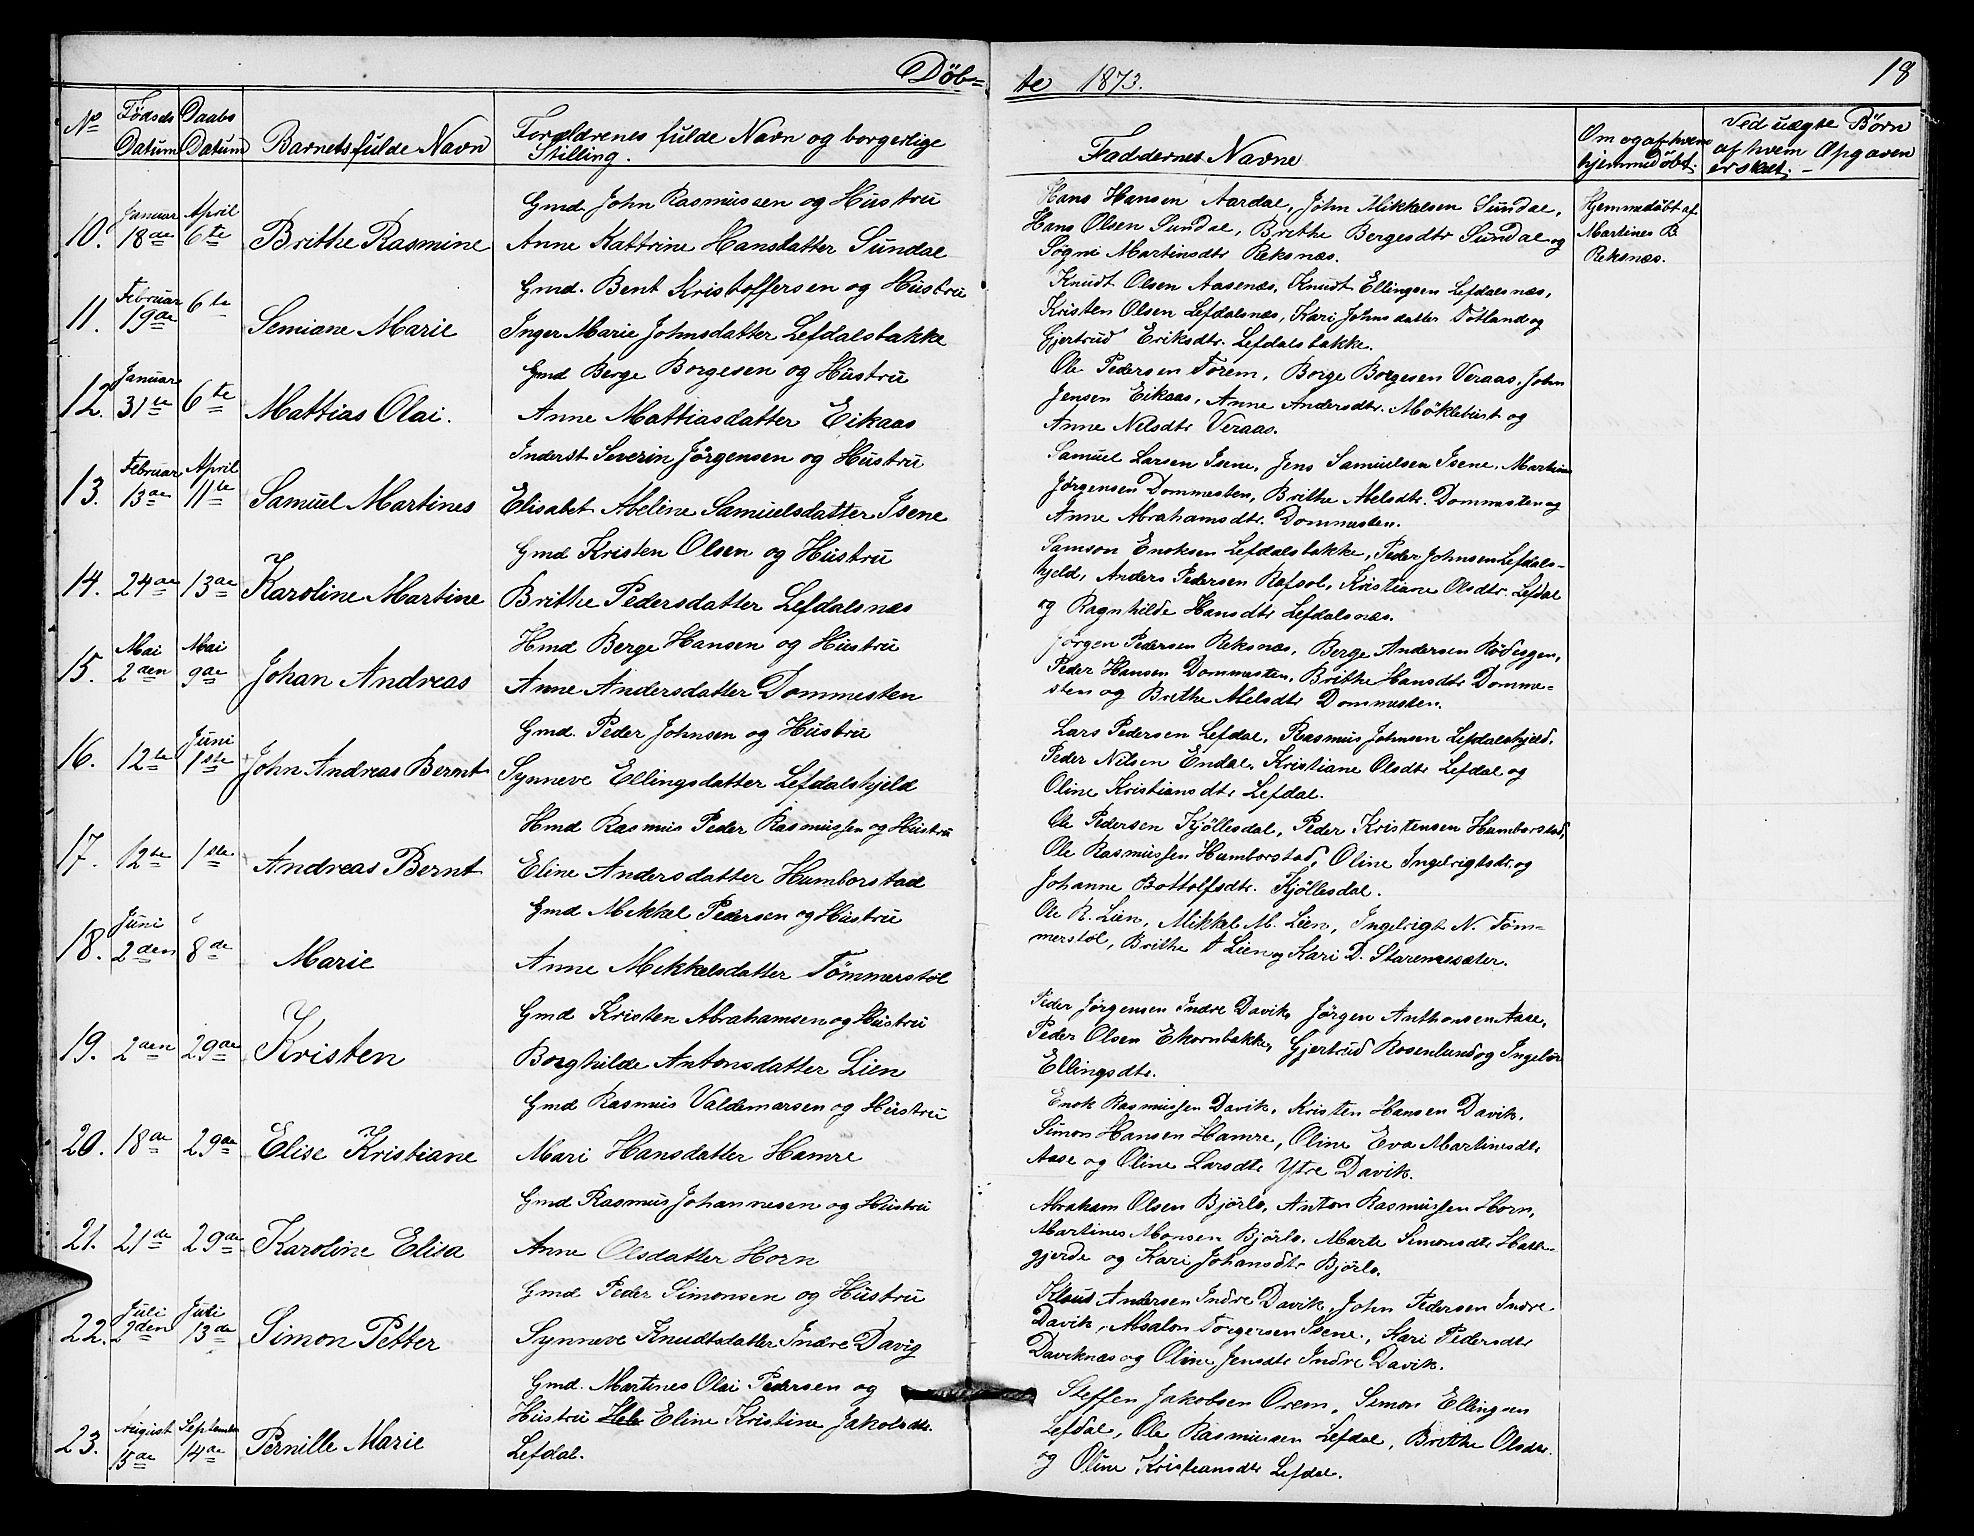 Döb=
te 1873.
18
No
Fødsels Datum
Daabs Datum
Barnets fulde Navn
Forældrenes fulde Navn og borgerlige Stilling.
Faddernes Navne
Om og af hvem hjemmedøbt.
Ved uægte Børn af hvem Opgaven er skeet. –
10. Januar 18de April 6te Brithe Rasmine
Gmd. John Rasmussen og Hustru
Anne Kattrine Hansdatter Sundal
Hans Hansen Aardal, John Mikkelsen Sundal,
Hans Olsen Sundal, Brithe Bergesdtr Sundal og
Søgni Martinsdtr Reksnæs.
Hjemmedöbt af
Martines B.
Reksnæs.
11. Februar 19de 6te Semiane Marie
Gmd. Bent Kristoffersen og Hustru
Inger Marie Johnsdatter Lefdalsbakke
Knudt Olsen Aasenæs, Knudt Ellingsen Lefdalsnæs,
Kristen Olsen Lefdalsnæs, Kari Johnsdatter Totland og
Gjertrud Eriksdtr. Lefdalsbakke.
12. Januar 31te 6te Mattias Olai.
Gmd Berge Borgesen og Hustru
Anne Mattiasdatter Eikaas
Ole Pedersen Torem, Borge Borgesen Veraas, John
Jensen Eikaas, Anne Andersdtr. Møklebust og
Anne Nelsdtr Veraas.
13. Februar 13de April 11te Samuel Martines
Inderst Severin Jörgensen og Hustru
Elisabet Abeline Samuelsdatter Isene
Samuel Larsen Isene, Jens Samuelsen Isene, Martin
Jørgensen Dommesten, Brithe Abelsdtr. Dommesten og
Anne Abrahamsdtr. Dommesten.
14. 24de 13de Karoline Martine
Gmd Kristen Olsen og Hustru
Brithe Pedersdatter Lefdalsnæs
Samson Enoksen Lefdalsbakke, Peder Johnsen Lefdals-
hjeld, Anders Pedersen Rafsol, Kristiane Olsdtr. Lefdal
og Ragnhilde Hansdtr Lefdalsnæs.
15. Mai 2den Mai 9de Johan Andreas
Hmd Berge Hansen og Hustru
Anne Andersdatter Dommesten
Jørgen Pedersen Reksnæs, Berge Andersen Rødeggen,
Peder Hansen Dommesten, Brithe Hansdtr Domme-
sten og Brithe Abelsdtr Dommesten.
16. 12te Juni 1ste John Andreas Bernt
Gmd. Peder Johnsen og Hustru
Synneve Ellingsdatter Lefdalshjeld
Lars Pedersen Lefdal, Rasmus Johnsen Lefdalshjeld.
Peder Nilsen Endal, Kristiane Olsdtr Lefdal og
Oline Kristiansdtr Lefdal.
17. 12te 1ste Andreas Bernt
Hmd Rasmus Peder Rasmussen og Hustru
Eline Andersdatter Humborstad
Ole Pedersen Kjöllesdal, Peder Kristensen Humborstad,
Ole Rasmussen Humborstad, Oline Ingelrigtsdtr. og
Johanne Bottolfsdtr. Kjöllesdal.
18. Juni 2den 8de Marie
Gmd Mekkel Pedersen og Hustru
Anne Mekkelsdatter Tömmerstöl
Ole R. Lien, Mikkel M. Lien, Ingelrigt N. Töm-
merstöl, Brithe Lien og Kari D. Staremesæter.
19. 2den 29de Kristen
Gmd Kristen Abrahamsen og Hustru
Borghilde Antonsdatter Lien
Peder Jørgensen Indre Davik, Jørgen Anthonsen Aase,
Peder Olsen Ekornbakke, Gjertrud Rosenlund og Ingebor
Ellingsdtr.
20. 18de 29de Elise Kristiane
Gmd Rasmus Valdemarsen og Hustru
Mari Hansdatter Hamre
Enok Rasmussen Davik, Kristen Hansen Davik,
Simon Hansen Hamre, Oline Eva Martinesdtr
Aase og Oline Larsdtr Ytre Davik.
21. 21de 29de Karoline Elisa
Gmd Rasmus Johannesen og Hustru
Anne Olsdatter Horn
Abraham Olsen Bjørlo, Anton Rasmussen Horn,
Martines Monsen Bjørlo, Marte Simonsdtr Hatle-
gjerde og Kari Johansdtr Bjørlo.
22. Juli 2den Juli 13de Simon Petter
Gmd Peder Simonsen og Hustru
Synneve Knudtsdatter Indre Davig
Klaus Andersen Indre Davik, John Pedersen Indre
Davik, Absalon Torgersen Isene, Kari Pedersdtr
Daviknæs og Oline Jensdtr Indre Davik.
23. August 15de September 14de Pernille Marie
Gmd. Martines Olai Pedersen og
Hustru Eline Kristine Jakobsdtr.
Lefdal.
Steffen Jakobsen Orem, Simon Ellingsen
Lefdal, Ole Rasmussen Lefdal, Brithe Olsdtr.
og Oline Kristiansdtr Lefdal.